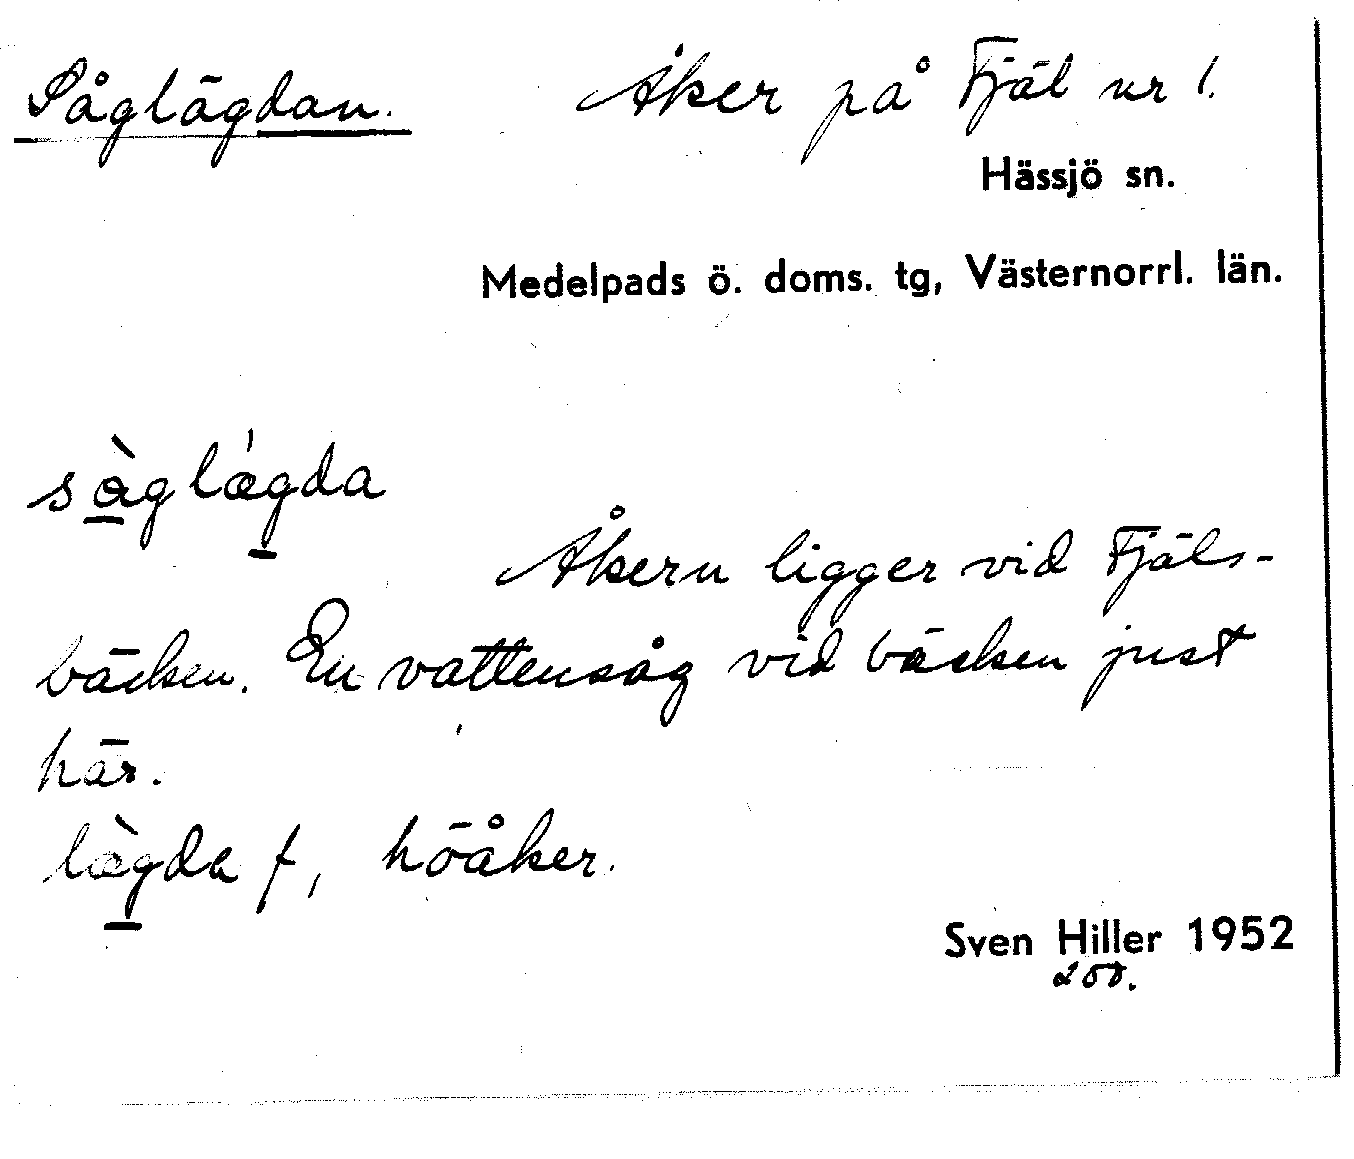 Såglägdan. Åker på Fjäl nr 1.
Hässjö sn.
Medelpads ö. doms. tg, Västernorrl. län.
sàglǽgda
Åkern ligger vid Fjäls-
bäcken. En vattensåg vid bäcken just
här.
lægda f, höåker.
Sven Hiller 1952